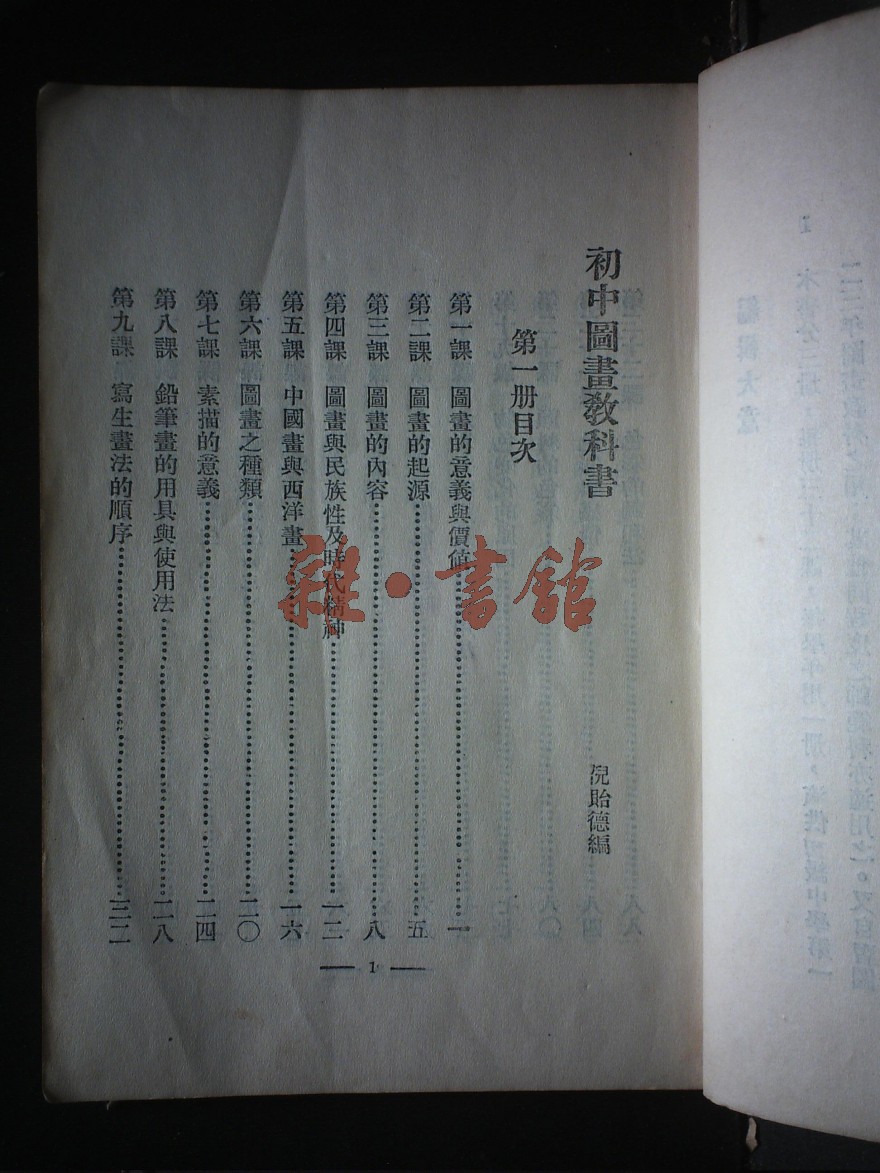 初中圖畫教科書
倪貽德編
第一册目次
第一課 圖畫的意義與價値……一
第二課 圖畫的起源……五
第三課 圖畫的內容……八
第四課 圖畫與民族性及時代精神……一二
第五課 中國畫與西洋畫……一六
第六課 圖畫之種類……二〇
第七課 素描的意義……二四
第八課 鉛筆畫的用具與使用法……二八
第九課 寫生畫法的順序……三二
— 1 —
雜·書館